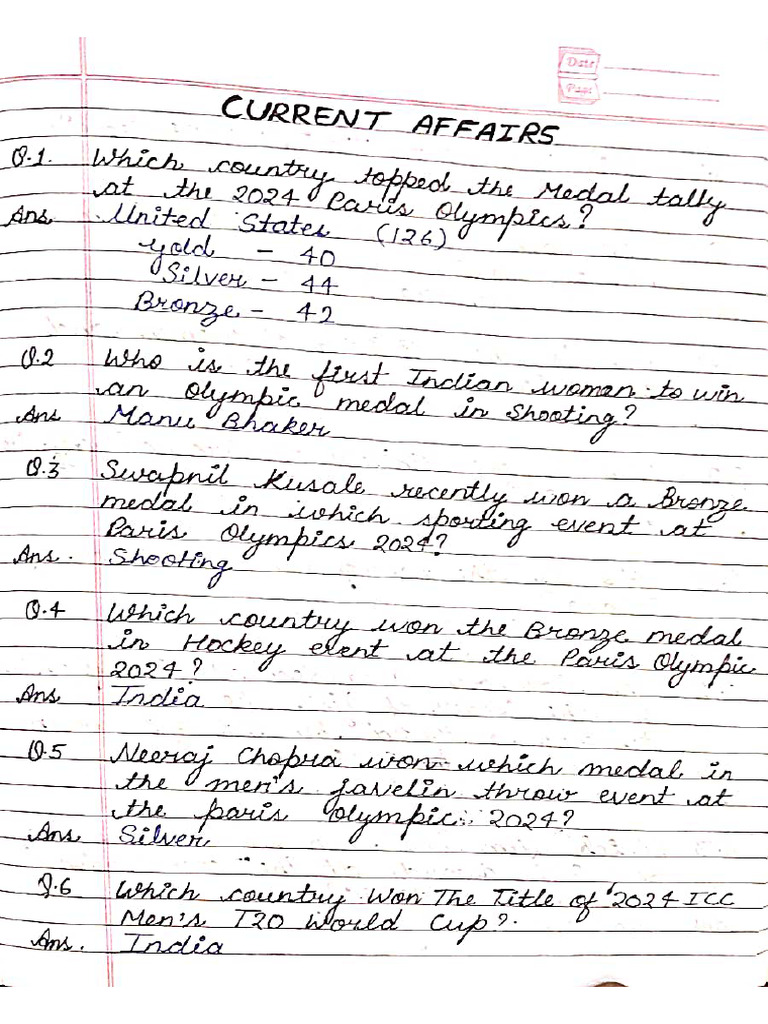 Date
Page
CURRENT AFFAIRS
Q.1. Which country topped the Medal tally
at the 2024 Paris Olympics?
Ans United States (126)
Gold - 40
Silver - 44
Bronze - 42
Q.2 Who is the first Indian woman to win
an Olympic medal in Shooting?
Ans Manu Bhaker
Q.3 Swapnil Kusale recently won a Bronze
medal in which sporting event at
Paris Olympics 2024?
Ans. Shooting
Q.4 Which country won the Bronze medal
in Hockey event at the Paris Olympic
2024?
Ans India
Q.5 Neeraj Chopra won which medal in
the men's javelin throw event at
the paris Olympic 2024?
Ans Silver
Q.6 Which country Won The Title of '2024 ICC
Men's T20 World Cup?
Ans. India